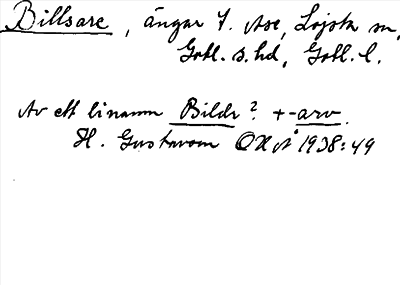 Billsare, ängar t. Ase, Lojsta sn,
Gotl. s. hd, Gotl. l.
Av ett binamn Bildr? + -arv.
H. Gustavson OHÅ 1938:49